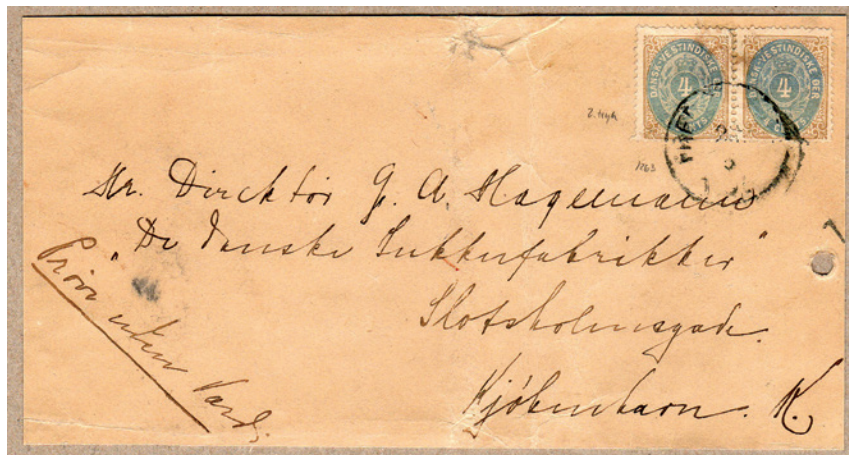 DANSK-VESTINDISKE ØER
4
4 CENTS
DANSK-VESTINDISKE ØER
4
4 CENTS
2. tryk
Hr. Direktör G. A. Hagemann
"De danske Sukkerfabrikker"
Slotsholmsgade.
Kjöbenhavn. K.
Pröve uden Værdi.